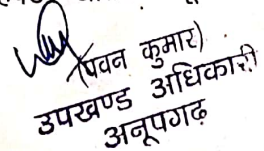 (पवन कुमार)
उपखण्ड अधिकारी
अनूपगढ़